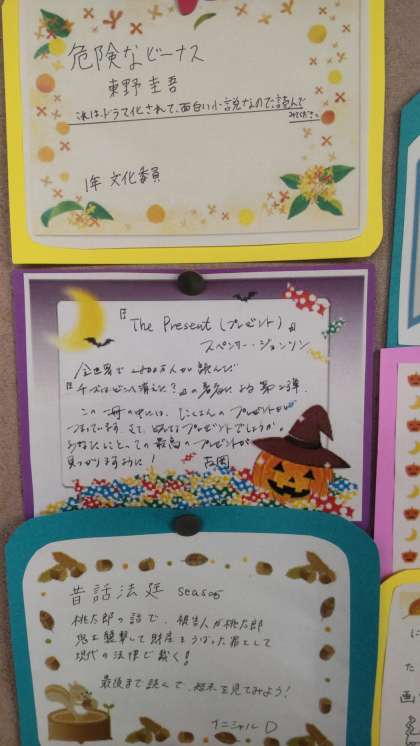 危険なビーナス
東野圭吾
これはドラマ化されて、面白い小説なので読んで
みてください。
1年 文化委員
『The Present (プレゼント)』
スペンサー・ジョンソン
全世界で2400万人が読んだ
『チーズはどこへ消えた?』の著者による第2弾。
この本の中には、たくさんのプレゼントが
つまってます。さて、どんなプレゼントでしょうか。
あなたにとっての最高のプレゼントが
見つかりますように!
吉岡
昔話法廷 season
桃太郎の話で、個告人が桃太郎
鬼を襲撃して財産をうばった罪として
現代の法律で裁く!
最後まで読んで、結末を見てみよう!
イニシャル D